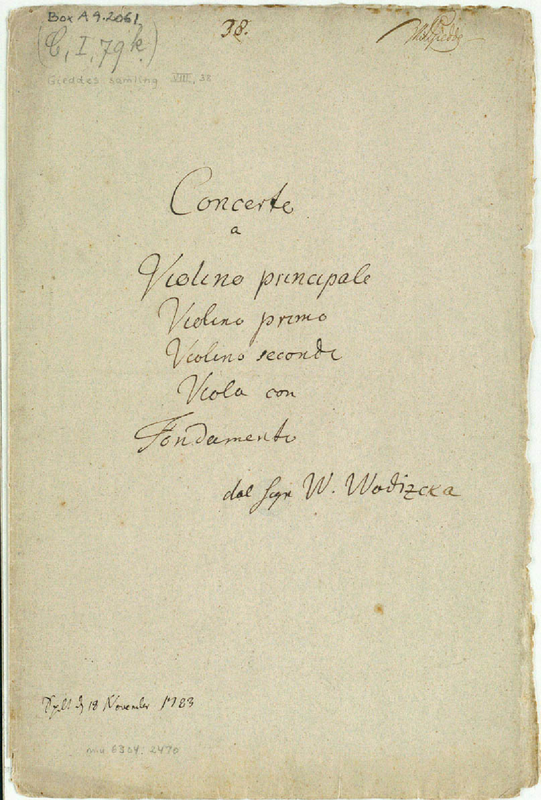 Box A 9.2061
(C, I, 79k.)
Gieddes samling VIII, 38
38.
WHRGiedde
Concerte
a
Violino principale
Violino primo
Violino secondo
Viola con
Fondamento
dal Sgr W. Wodizcka
18 November 1783
mu 6304.2470